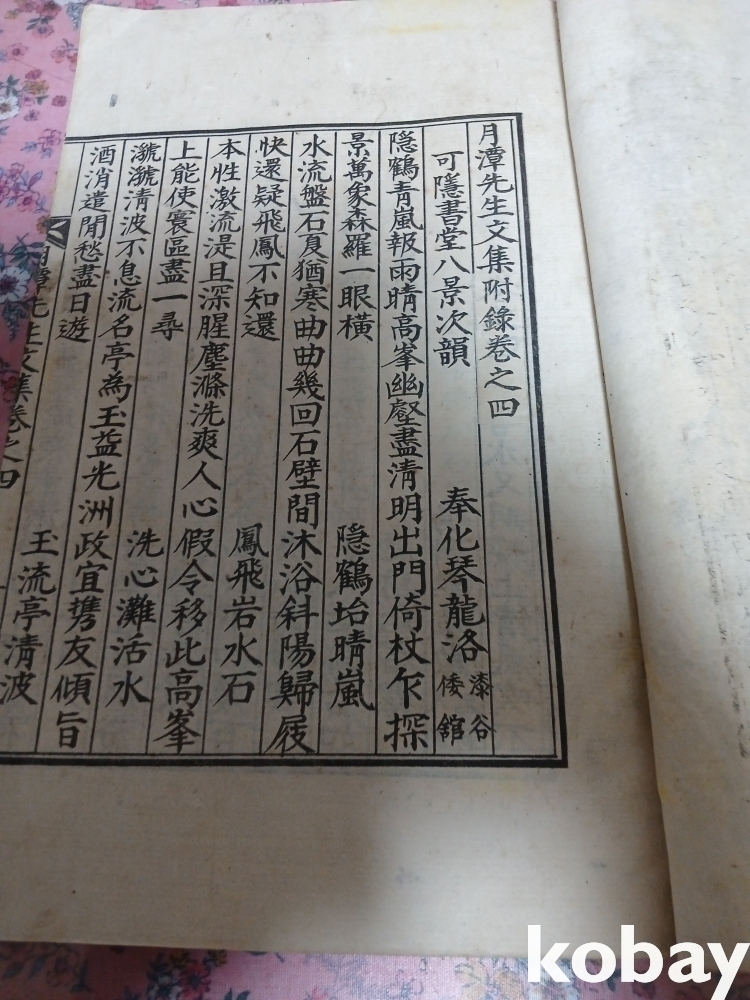 月潭先生文集附錄卷之四
可隱書堂八景次韻 奉化琴龍洛 漆谷 倭舘
隱鶴青嵐報雨晴高峯幽壑盡清明出門倚杖乍探
景萬象森羅一眼橫 隱鶴坮晴嵐
水流盤石夏猶寒曲曲幾回石壁間沐浴斜陽歸屐
快還疑飛鳳不知還 鳳飛岩水石
本性激流湜且深腥塵滌洗爽人心假令移此高峯
上能使寰區盡一尋 洗心灘活水
潝潝清波不息流名亭為玉益光洲政宜携友傾旨
酒消遣閒愁盡日遊 玉流亭清波
月潭先生文集卷之四
kobay